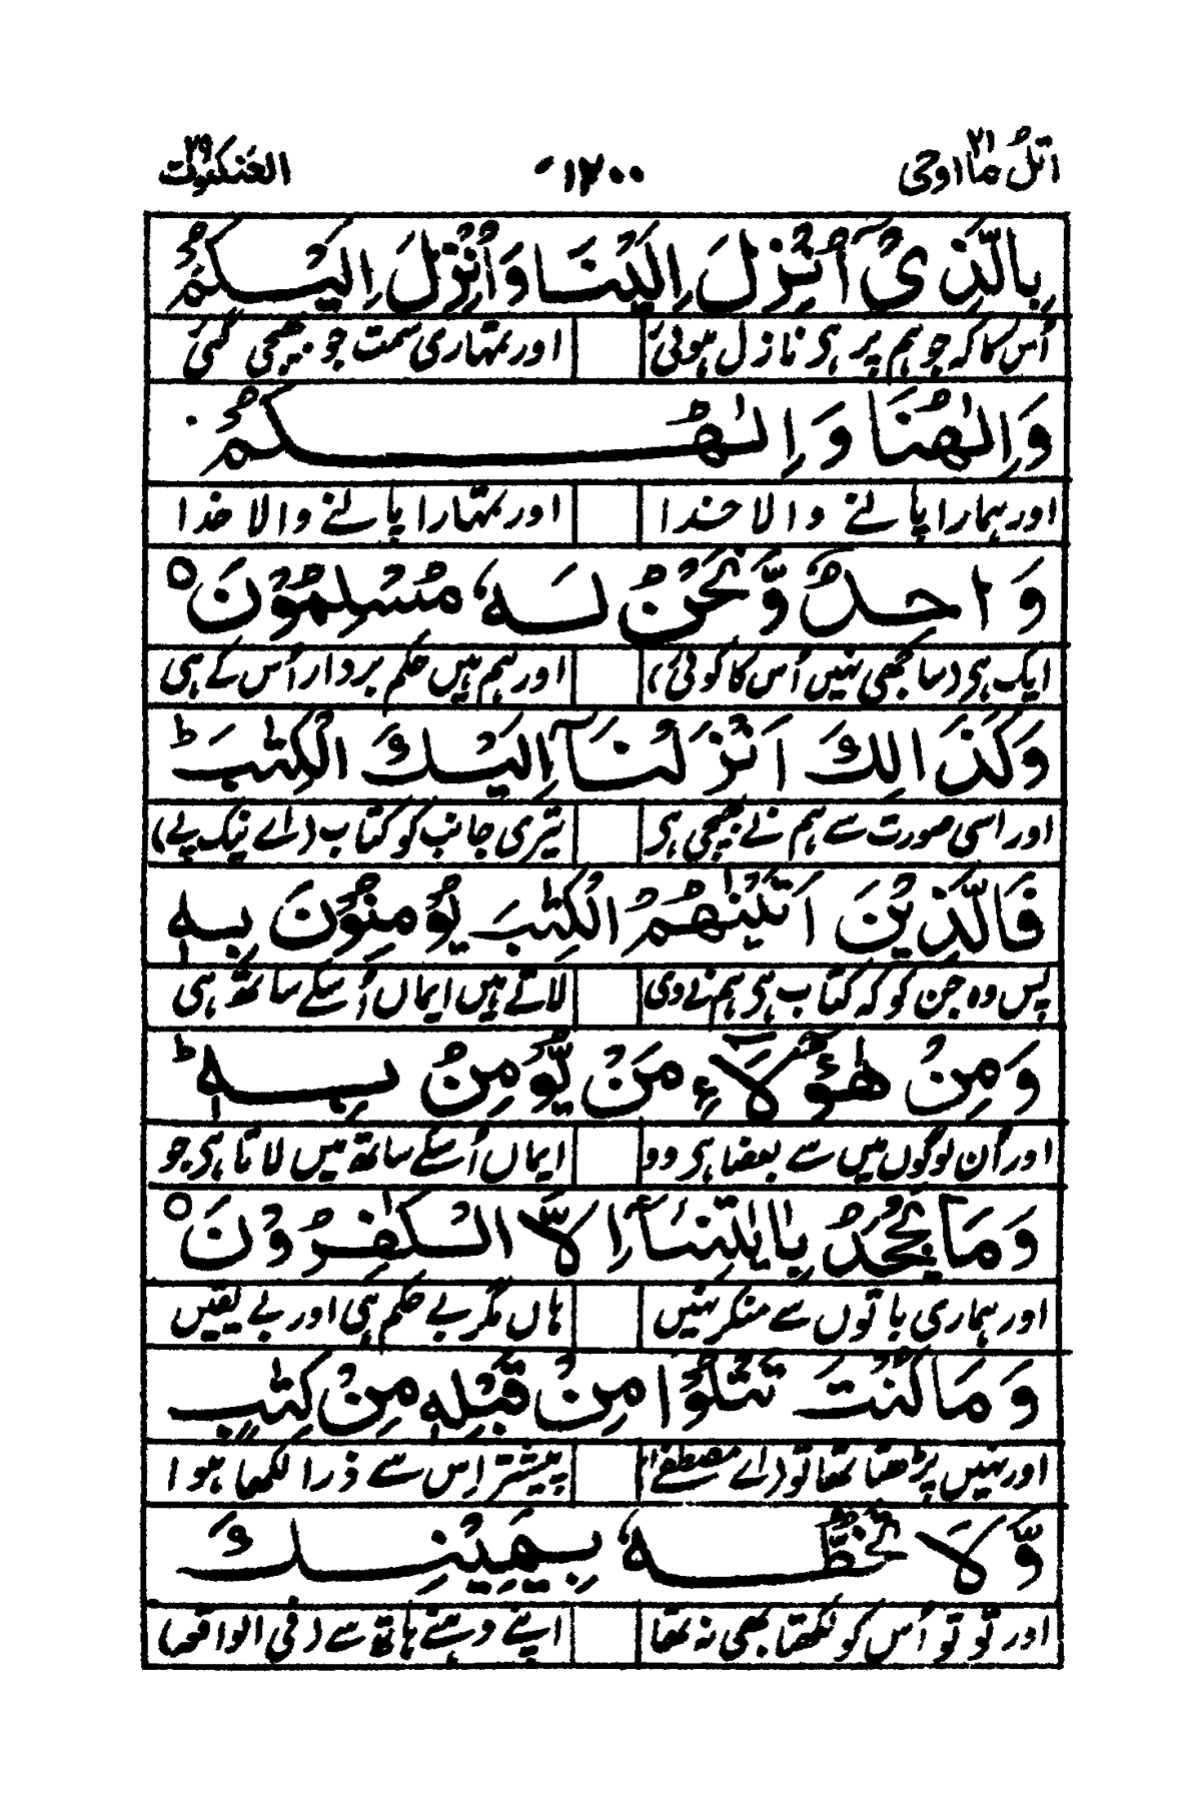 اتلُ ما اوحی ۲۱ ۱۲۰۰ العنکبوت ۲۹
بِالَّذِیْۤ اُنْزِلَ اِلَیْنَا وَاُنْزِلَ اِلَیْكُمْ
اُس کا کہ جو ہم پر ہی نازل ہوئی اور تمہاری سمت جو بھیجی گئی
وَاِلٰهُنَا وَاِلٰهُكُمْ
اور ہمارا پالنے والا خدا اور تمہارا پالنے والا خدا
وَاحِدٌ وَّنَحْنُ لَهٗ مُسْلِمُوْنَ ○
ایک ہی (ساجھی نہیں اُس کا کوئی) اور ہم ہیں حکم بردار اُس کے ہی
وَكَذَالِكَ اَنْزَلْنَاۤ اِلَیْكَ الْكِتٰبَ ؕ
اور اسی صورت سے ہم نے بھیجی ہی تیری جانب کو کتاب (اے نیک پے)
فَالَّذِیْنَ اٰتَیْنٰهُمُ الْكِتٰبَ یُؤْمِنُوْنَ بِهٖ
پس وہ جن کو کہ کتاب ہی ہم نے دی لاتے ہیں ایماں اُسکے ساتھ ہی
وَمِنْ هٰۤؤُلَآءِ مَنْ یُّؤْمِنُ بِهٖ ؕ
اور اُن لوگوں میں سے بعضا ہی وو ایماں اُسکے ساتھ میں لاتا ہی جو
وَمَا یَجْحَدُ بِاٰیٰتِنَاۤ اِلَّا الْكٰفِرُوْنَ ○
اور ہماری باتوں سے منکر نہیں ہاں مگر بے حکم ہی اور بے یقیں
وَمَا كُنْتَ تَتْلُوْا مِنْ قَبْلِهٖ مِنْ كِتٰبٍ
اور نہیں پڑھتا تھا تو (اے مصطفےٰ) پیشتر اِس سے ذرا لکھا ہوا
وَّلَا تَخُطُّهٗ بِیَمِیْنِكَ
اور تو تو اُس کو لکھتا بھی نہ تھا اپنے دہنے ہاتھ سے (فی الواقعہ)